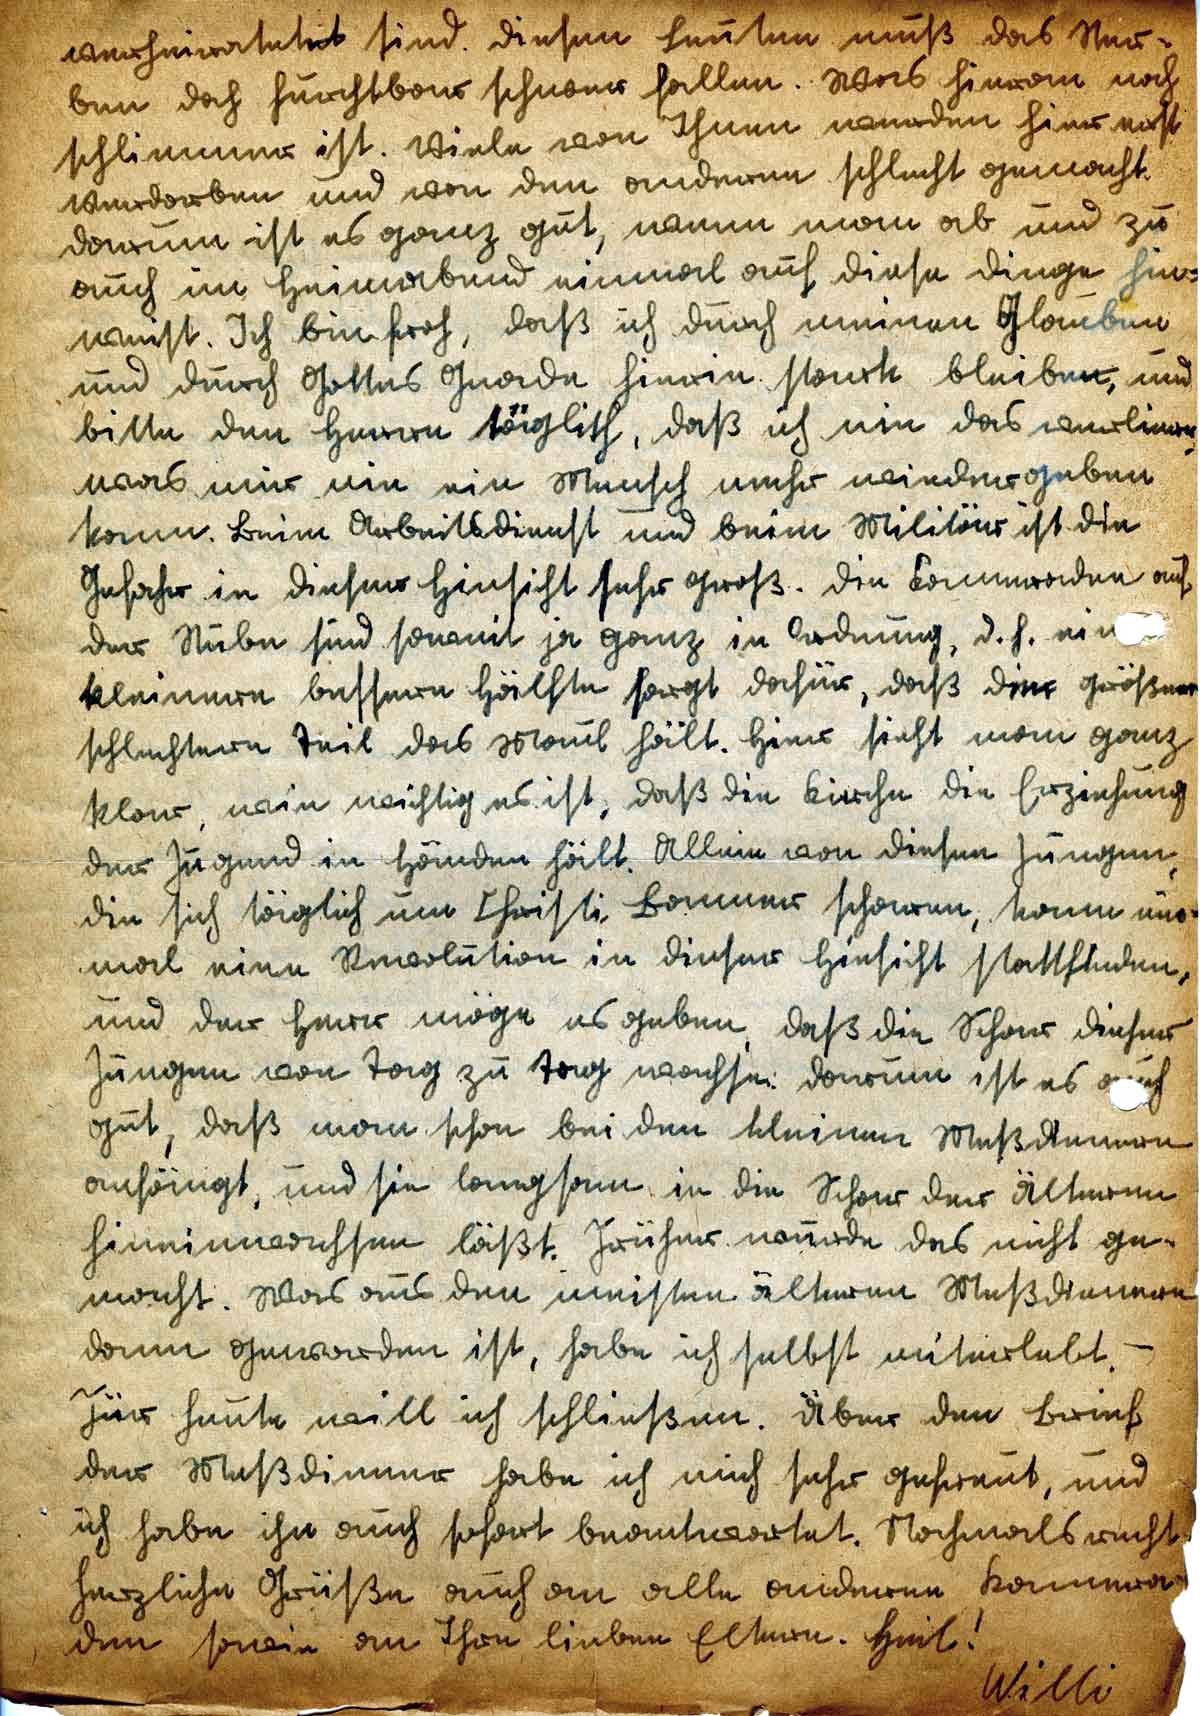 verheiratet sind. diesen Leuten muß das Ster-
ben doch furchtbar schwer fallen. Was hieran noch
schlimmer ist. Viele von Ihnen werden hier erst
verdorben und von den anderen schlecht gemacht.
darum ist es ganz gut, wenn man ab und zu
auch im Heimabend einmal auf diese dinge hin-
weist. Ich bin froh, daß ich durch meinen Glauben
und durch Gottes Gnade hierin stark bleiben, und
bitte den Herrn täglich, daß ich nie das verliere,
was mir nie ein Mensch mehr wiedergeben
kann. Beim Arbeitsdienst und beim Militär ist die
Gefahr in dieser Hinsicht sehr groß. die Kameraden auf
der Stube sind soweit ja ganz in Ordnung, d. h. ein
kleinere bessere Hälfte sorgt dafür, daß der größere
schlechtere Teil das Maul hält. Hier sieht man ganz
klar, wie wichtig es ist, daß die Kirche die Erziehung
der Jugend in Händen hält. Allein von diesen Jungen,
die sich täglich um Christi Banner scharen, kann ein-
mal eine Revolution in dieser Hinsicht stattfinden,
und der Herr möge es geben, daß die Schar dieser
Jungen von Tag zu Tag wachse. darum ist es auch
gut, daß man schon bei den kleinen Meßdienern
anfängt, und sie langsam in die Schar der Älteren
hineinwachsen läßt. Früher wurde das nicht ge-
macht. Was aus den meisten älteren Meßdienern
dann geworden ist, habe ich selbst miterlebt. –
Für heute will ich schließen. Über den Brief
der Meßdiener habe ich mich sehr gefreut, und
ich habe ihn auch sofort beantwortet. Nochmals recht
herzliche Grüße auch an alle anderen Kamera-
den sowie an Ihre lieben Eltern. Heil!
Willi